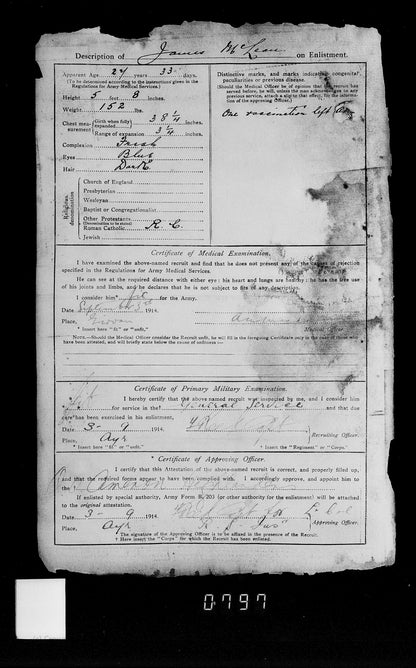 Description of James McLean on Enlistment.
Apparent Age 24 years 33 days.
(To be determined according to the instructions given in the
Regulations for Army Medical Services.)
Height 5 8
Weight 152 lbs.
Chest measurement { Girth when fully expanded 38 1/4
Range of expansion 3 1/4
Complexion Fresh
Eyes Blue
Hair Dark
Religious denomination
Church of England
Presbyterian
Wesleyan
Baptist or Congregationalist
Other Protestants
(Denomination to be stated)
Roman Catholic R. C.
Jewish
Distinctive marks, and marks indicating congenital
peculiarities or previous disease.
(Should the Medical Officer be of opinion that the recruit has
served before, he will, unless the man acknowledges to any
previous service, attach a slip to that effect, for the information
of the approving Officer).
One vaccination left arm
Certificate of Medical Examination.
I have examined the above-named recruit and find that he does not present any of the causes of rejection
specified in the Regulations for Army Medical Services.
He can see at the required distance with either eye: his heart and lungs are healthy: he has the free use
of his joints and limbs, and he declares that he is not subject to fits of any description.
I consider him* fit for the Army.
Date September 1914.
Place,
Medical Officer.
* Insert here "fit" or "unfit."
NOTE.—Should the Medical Officer consider the Recruit unfit, he will fill in the foregoing Certificate only in the case of those who
have been attested, and will briefly state below the cause of unfitness:—
Certificate of Primary Military Examination.
I hereby certify that the above-named recruit was inspected by me, and I consider him
fit for service in the† General Service and that due
care has been exercised in his enlistment.
Date 3- 9 1914.
Place, Ayr
Recruiting Officer.
* Insert here "fit" or "unfit." † Insert the "Regiment" or "Corps."
Certificate of Approving Officer.
I certify that this Attestation of the above-named recruit is correct, and properly filled up,
and that the required forms appear to have been complied with. I accordingly approve, and appoint him to
the ‡ Cameron
If enlisted by special authority, Army Form B. 203 (or other authority for the enlistment) will be attached
to the original attestation.
Date 3- 9 1914.
Place, Ayr
Approving Officer.
† The signature of the Approving Officer is to be affixed in the presence of the Recruit.
‡ Here insert the "Corps" for which the Recruit has been enlisted.
0797